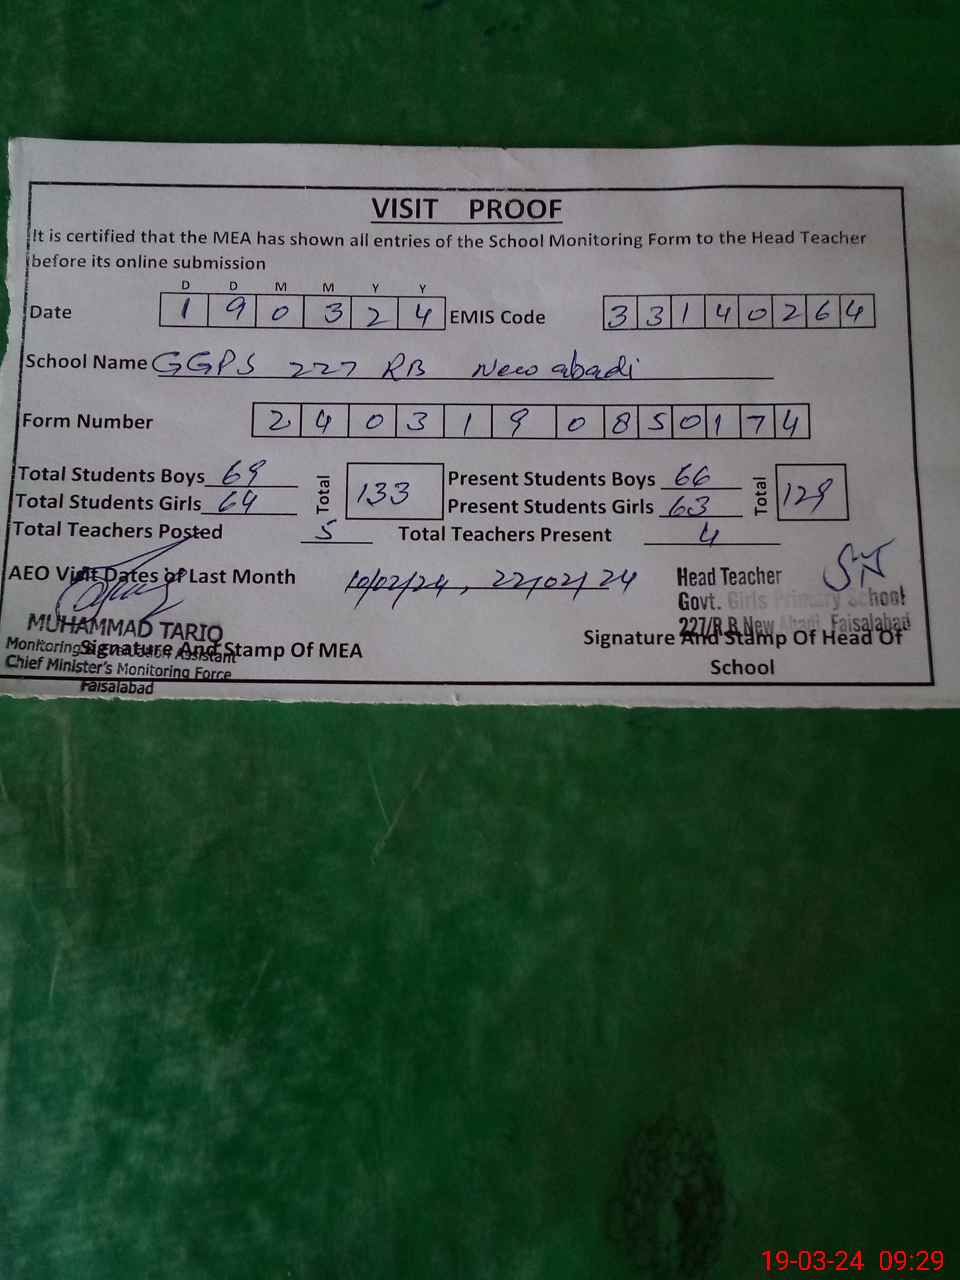 VISIT PROOF
It is certified that the MEA has shown all entries of the School Monitoring Form to the Head Teacher
before its online submission
D D M M Y Y
Date 1 9 0 3 2 4 EMIS Code 3 3 1 4 0 2 6 4
School Name GGPS 227 RB New abadi
Form Number 2 4 0 3 1 9 0 8 5 0 1 7 4
Total Students Boys 69 Total 133 Present Students Boys 66 Total 129
Total Students Girls 64 Present Students Girls 63
Total Teachers Posted 5 Total Teachers Present 4
AEO Visit Dates of Last Month 10/02/24, 22/02/24
Head Teacher
Govt. Girls Primary School
227/R.B New Abadi, Faisalabad
MUHAMMAD TARIQ
Monitoring & Evaluation Assistant
Chief Minister's Monitoring Force
Faisalabad
Signature And Stamp Of MEA
Signature And Stamp Of Head Of
School
19-03-24 09:29